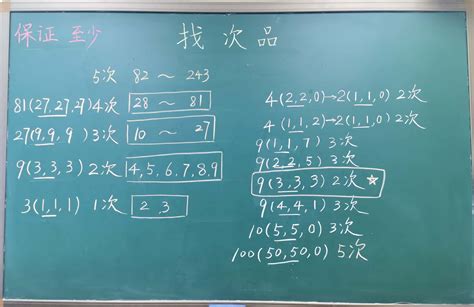 保证 至少
找次品
5次 82 ~ 243
81(27,27,27)4次 28 ~ 81
27(9,9,9) 3次 10 ~ 27
9(3,3,3) 2次 4,5,6,7,8,9
3(1,1,1) 1次 2,3
4(2,2,0)→2(1,1,0) 2次
4(1,1,2)→2(1,1,0) 2次
9(1,1,7) 3次
9(2,2,5) 3次
9(3,3,3) 2次 ☆
9(4,4,1) 3次
10(5,5,0) 3次
100(50,50,0) 5次